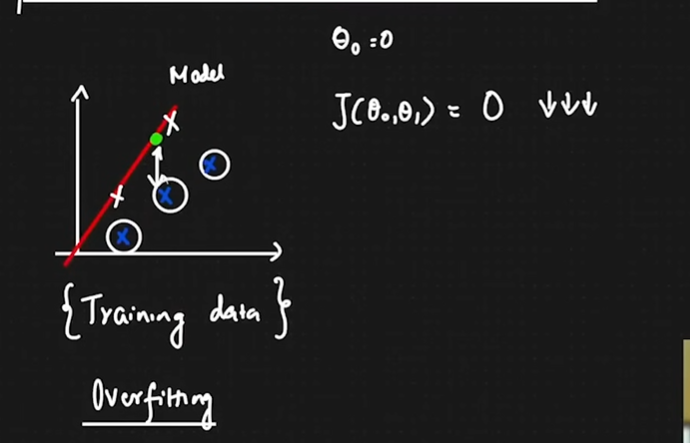 θ₀ = 0
Model
J(θ₀,θ₁) = 0 ↓↓↓
x
x
x
x
x
{Training data}
Overfitting